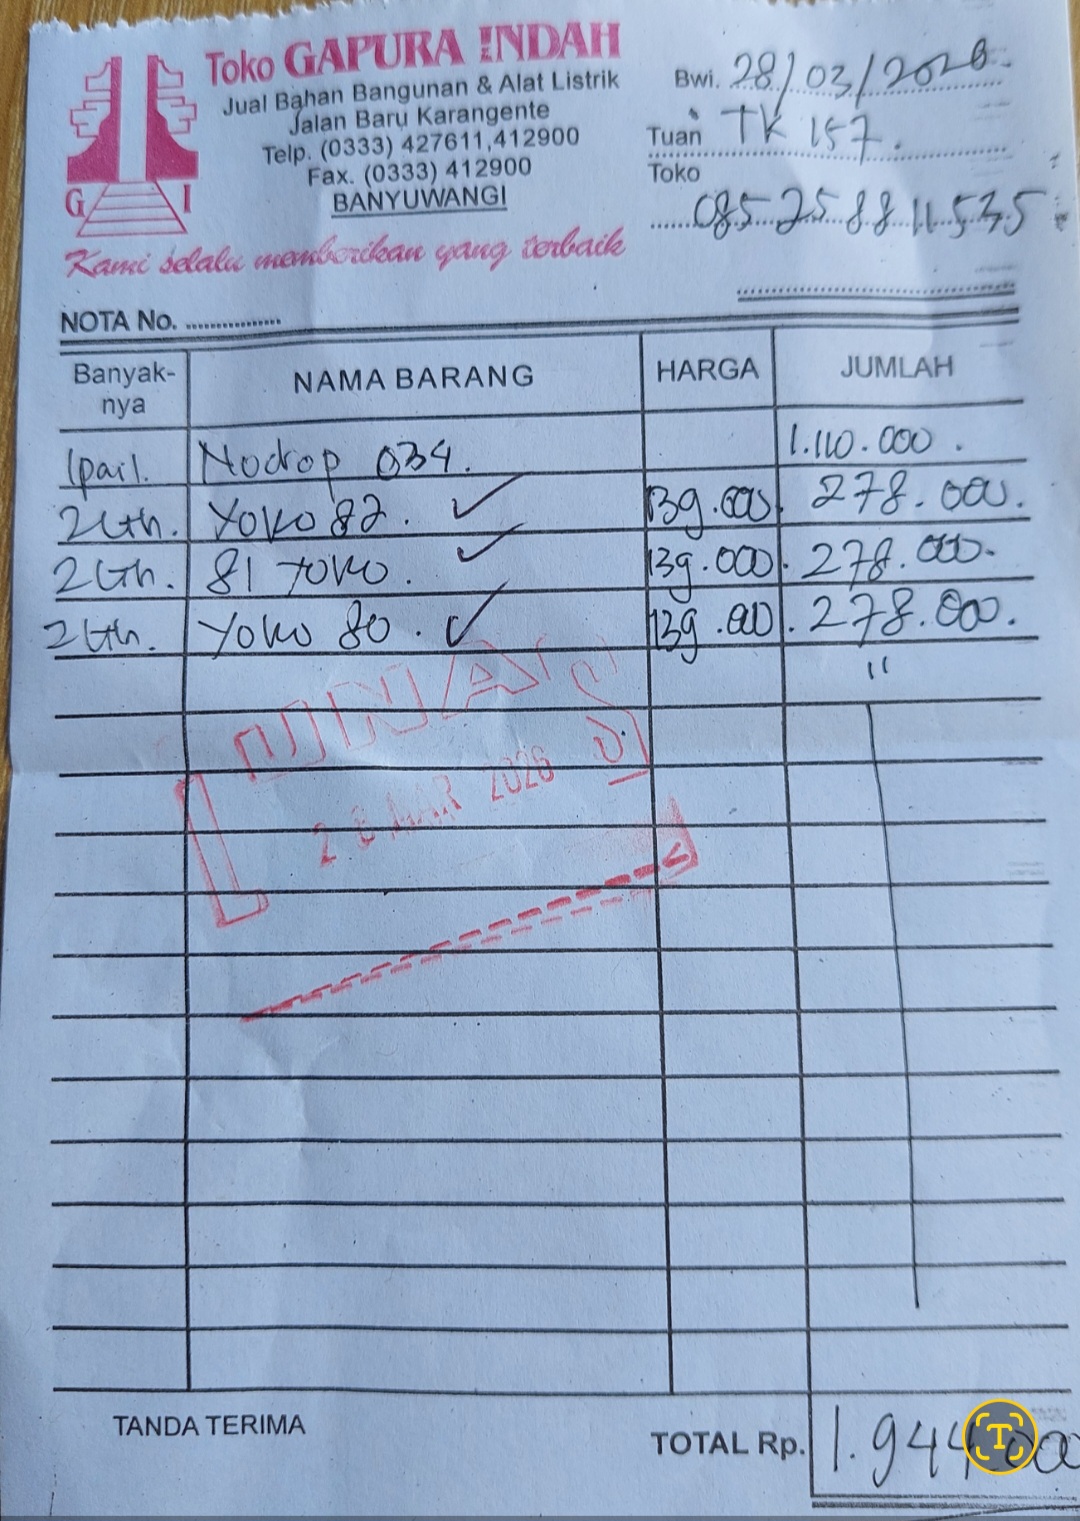 Toko GAPURA INDAH
Jual Bahan Bangunan & Alat Listrik
Jalan Baru Karangente
Telp. (0333) 427611,412900
Fax. (0333) 412900
BANYUWANGI
G I
Kami selalu memberikan yang terbaik
Bwi. 28/03/2026.
Tuan TK 157.
Toko
085258811535
NOTA No. ...............
Banyak-nya NAMA BARANG HARGA JUMLAH
1 pail. Nodrop 034. 1.110.000.
2 Gln. Yoko 82. ✓ 139.000. 278.000.
2 Gln. 81 Yoko. ✓ 139.000. 278.000.
2 Gln. Yoko 80. ✓ 139.000. 278.000.
"
LUNAS
28 MAR 2026
TANDA TERIMA
TOTAL Rp. 1.944.00
T